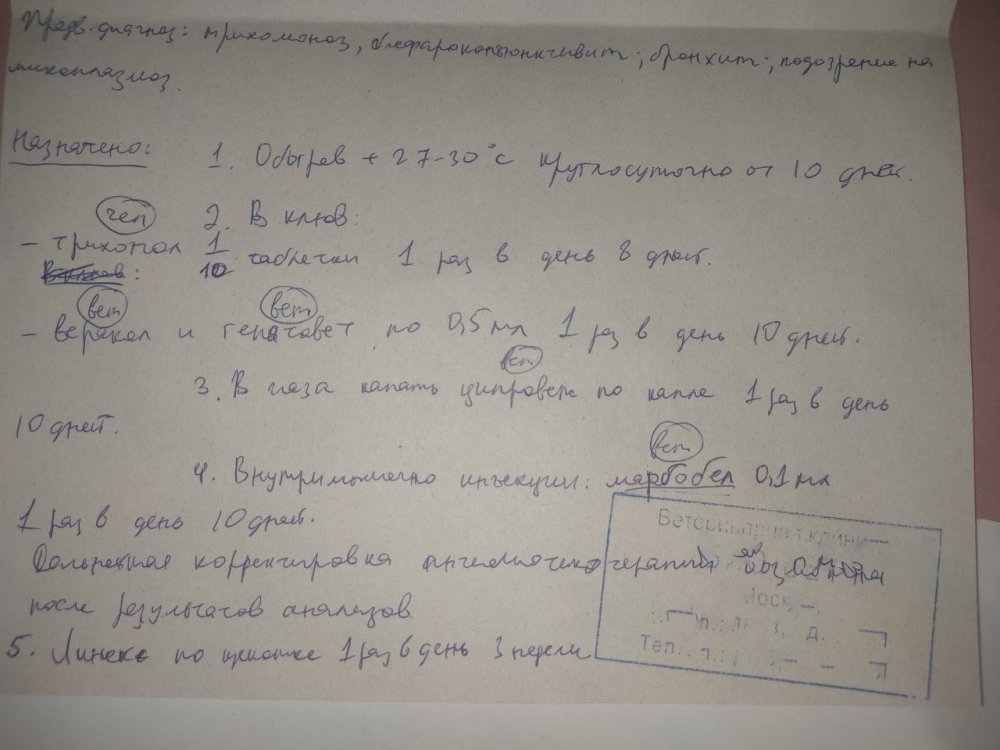 Предв. диагноз: трихомоноз, блефароконъюнктивит; бронхит; подозрение на
микоплазмоз.
Назначено: 1. Обогрев + 27-30°C круглосуточно от 10 дней.
чел
2. В клюв:
- трихопол 1/10 таблетки 1 раз в день 8 дней.
вет вет
- веракол и гепатовет по 0,5 мл 1 раз в день 10 дней.
вет
3. В глаза капать ципровет по капле 1 раз в день
10 дней.
вет
4. Внутримышечно инъекции: марбобел 0,1 мл
1 раз в день 10 дней.
Дальнейшая корректировка терапии
после результатов анализов
5. Линекс по щепотке 1 раз в день 3 недели
Ветеринарная клини
Моск
д.
Тел.